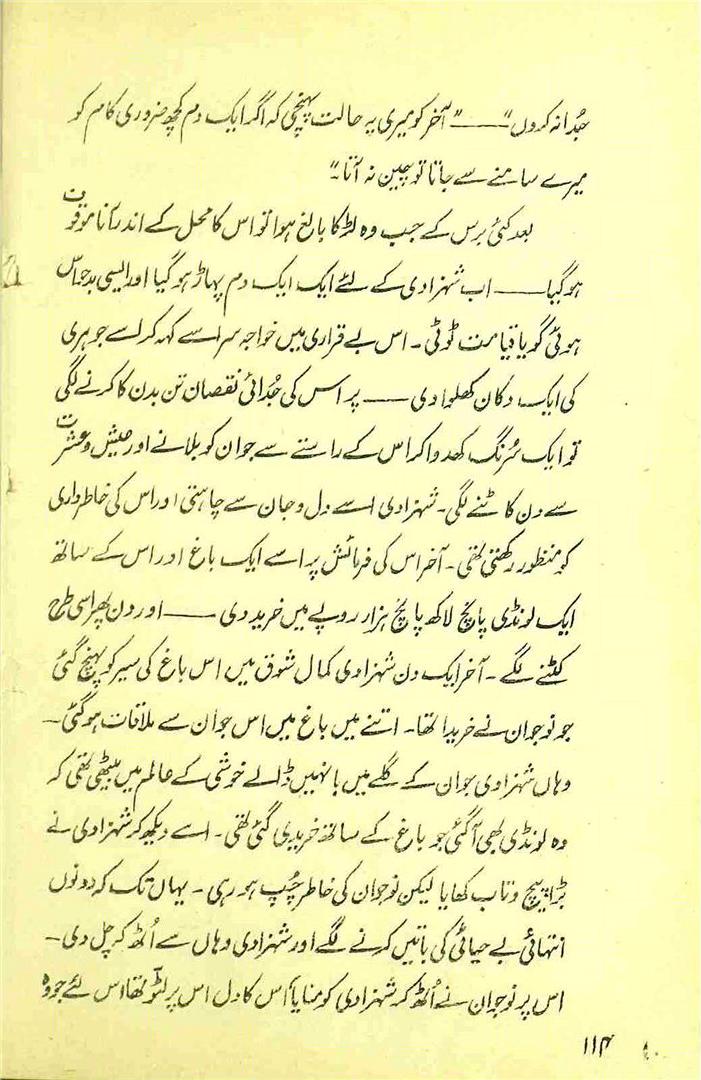 جُدا نہ کروں" —— "آخر کو میری یہ حالت پہنچی کہ اگر ایک دم کچھ ضروری کام کو
میرے سامنے سے جاتا تو چین نہ آتا۔"
بعد کئی برس کے جب وہ لڑکا بالغ ہوا تو اس کا محل کے اندر آنا موقوف
ہو گیا —— اب شہزادی کے لئے ایک ایک دم پہاڑ ہو گیا اور ایسی بدحواس
ہوئی گویا قیامت ٹوٹی۔ اس بے قراری میں خواجہ سرا سے کہہ کر اسے جوہری
کی ایک دکان کھلوا دی —— پر اس کی جُدائی نقصان تن بدن کا کرنے لگی
تو ایک سُرنگ کھدوا کر اس کے راستے سے جوان کو بلانے اور عیش و عشرت
سے دن کاٹنے لگی۔ شہزادی اسے دل و جان سے چاہتی اور اس کی خاطر داری
کو منظور رکھتی تھی۔ آخر اس کی فرمائش پر اسے ایک باغ اور اس کے ساتھ
ایک لونڈی پانچ لاکھ پانچ ہزار روپے میں خرید دی —— اور دن پھر اسی طرح
کٹنے لگے۔ آخر ایک دن شہزادی کمال شوق میں اس باغ کی سیر کو پہنچ گئی
جو نوجوان نے خریدا تھا۔ اتنے میں باغ میں اس جوان سے ملاقات ہو گئی۔
وہاں شہزادی جوان کے گلے میں بانہیں ڈالے خوشی کے عالم میں بیٹھی تھی کہ
وہ لونڈی بھی آ گئی جو باغ کے ساتھ خریدی گئی تھی۔ اسے دیکھ کر شہزادی نے
بڑا پیچ و تاب کھایا لیکن نوجوان کی خاطر چُپ ہو رہی۔ یہاں تک کہ دونوں
انتہائی بے حیائی کی باتیں کرنے لگے اور شہزادی وہاں سے اُٹھ کر چل دی۔
اس پر نوجوان نے اُٹھ کر شہزادی کو منایا اُس کا دل اس پر لٹو تھا اس لئے جو وہ
۱۱۴